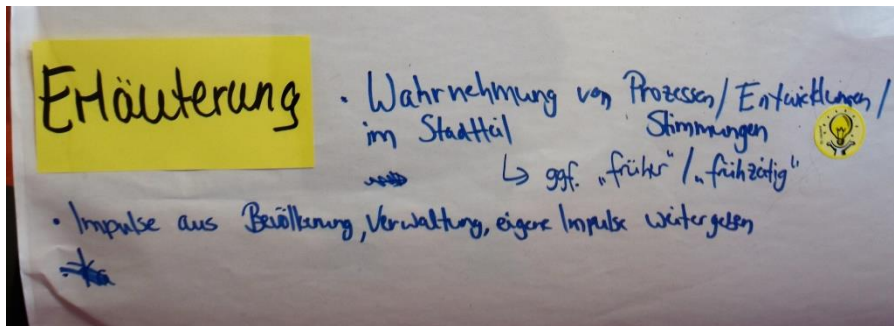 Erläuterung
· Wahrnehmung von Prozessen / Entwicklungen /
im Stadtteil Stimmungen
↳ ggf. „früher" / „frühzeitig"
· Impulse aus Bevölkerung, Verwaltung, eigene Impulse weitergeben